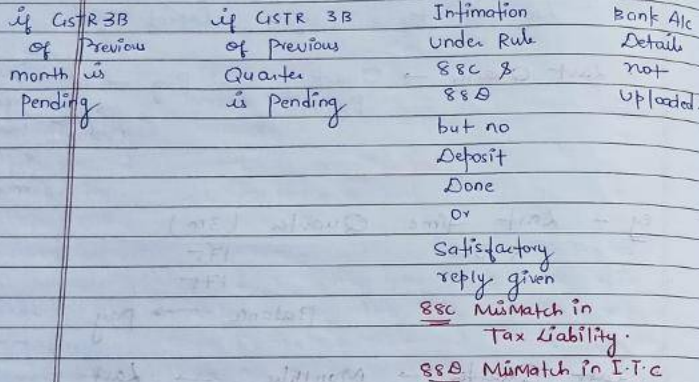 if GSTR 3B
of Previous
month is
Pending
if GSTR 3B
of Previous
Quarter
is pending
Intimation
under Rule
88C &
88D
but no
Deposit
Done
Or
Satisfactory
reply given
88C MisMatch in
Tax Liability.
88D MisMatch in I.T.C
Bank A/c
Details
not
uploaded.